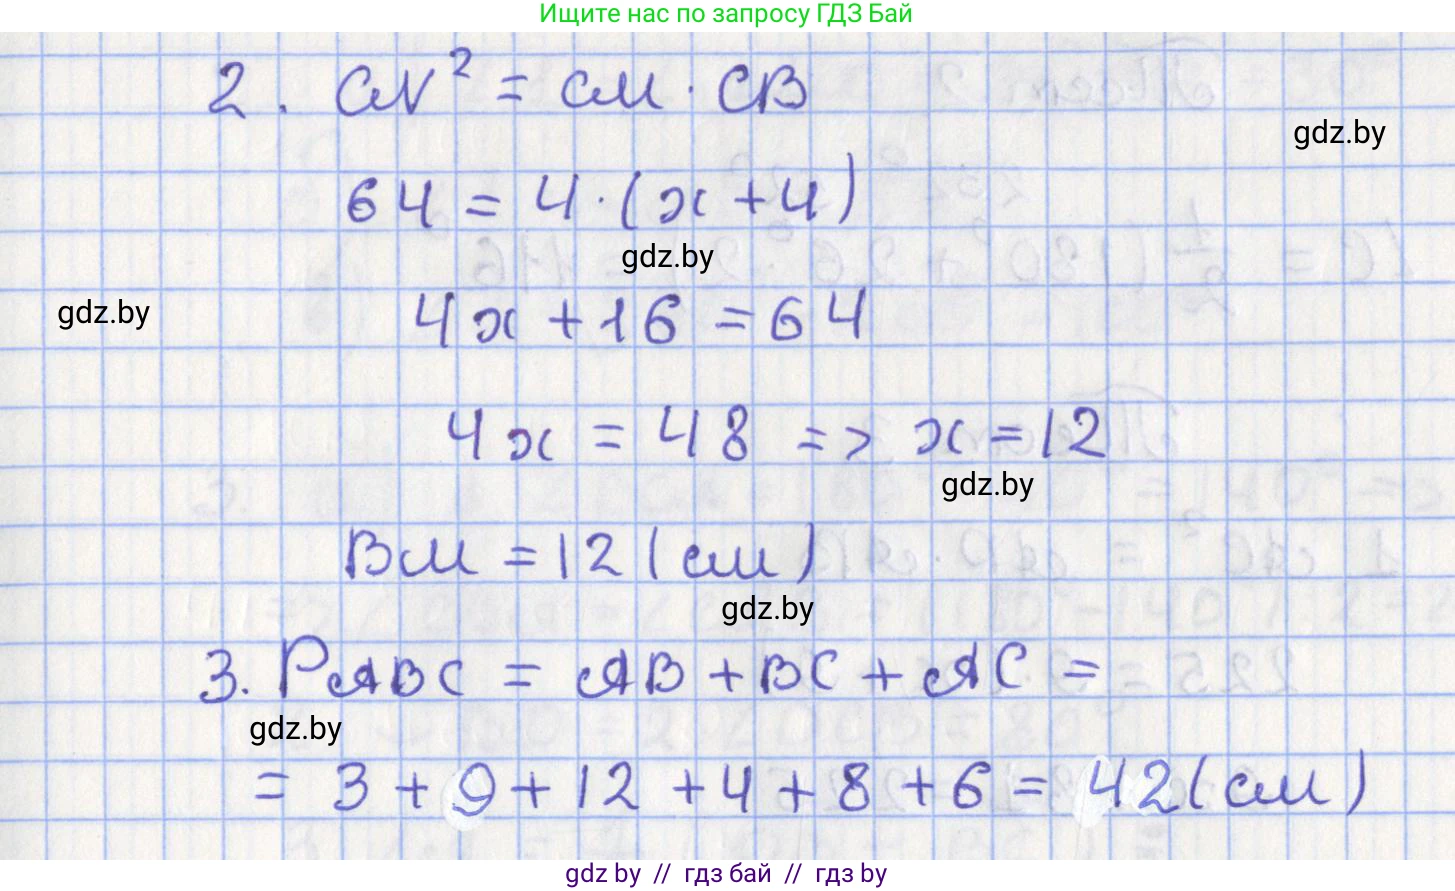 Ищите нас по запросу ГДЗ Бай
2. CN² = CM · CB
gdz.by
64 = 4 · (x + 4)
gdz.by
gdz.by
4x + 16 = 64
4x = 48 => x = 12
gdz.by
BM = 12 (см)
gdz.by
3. PABC = AB + BC + AC =
gdz.by
= 3 + 9 + 12 + 4 + 8 + 6 = 42 (см)
gdz.by // гдз бай // гдз by